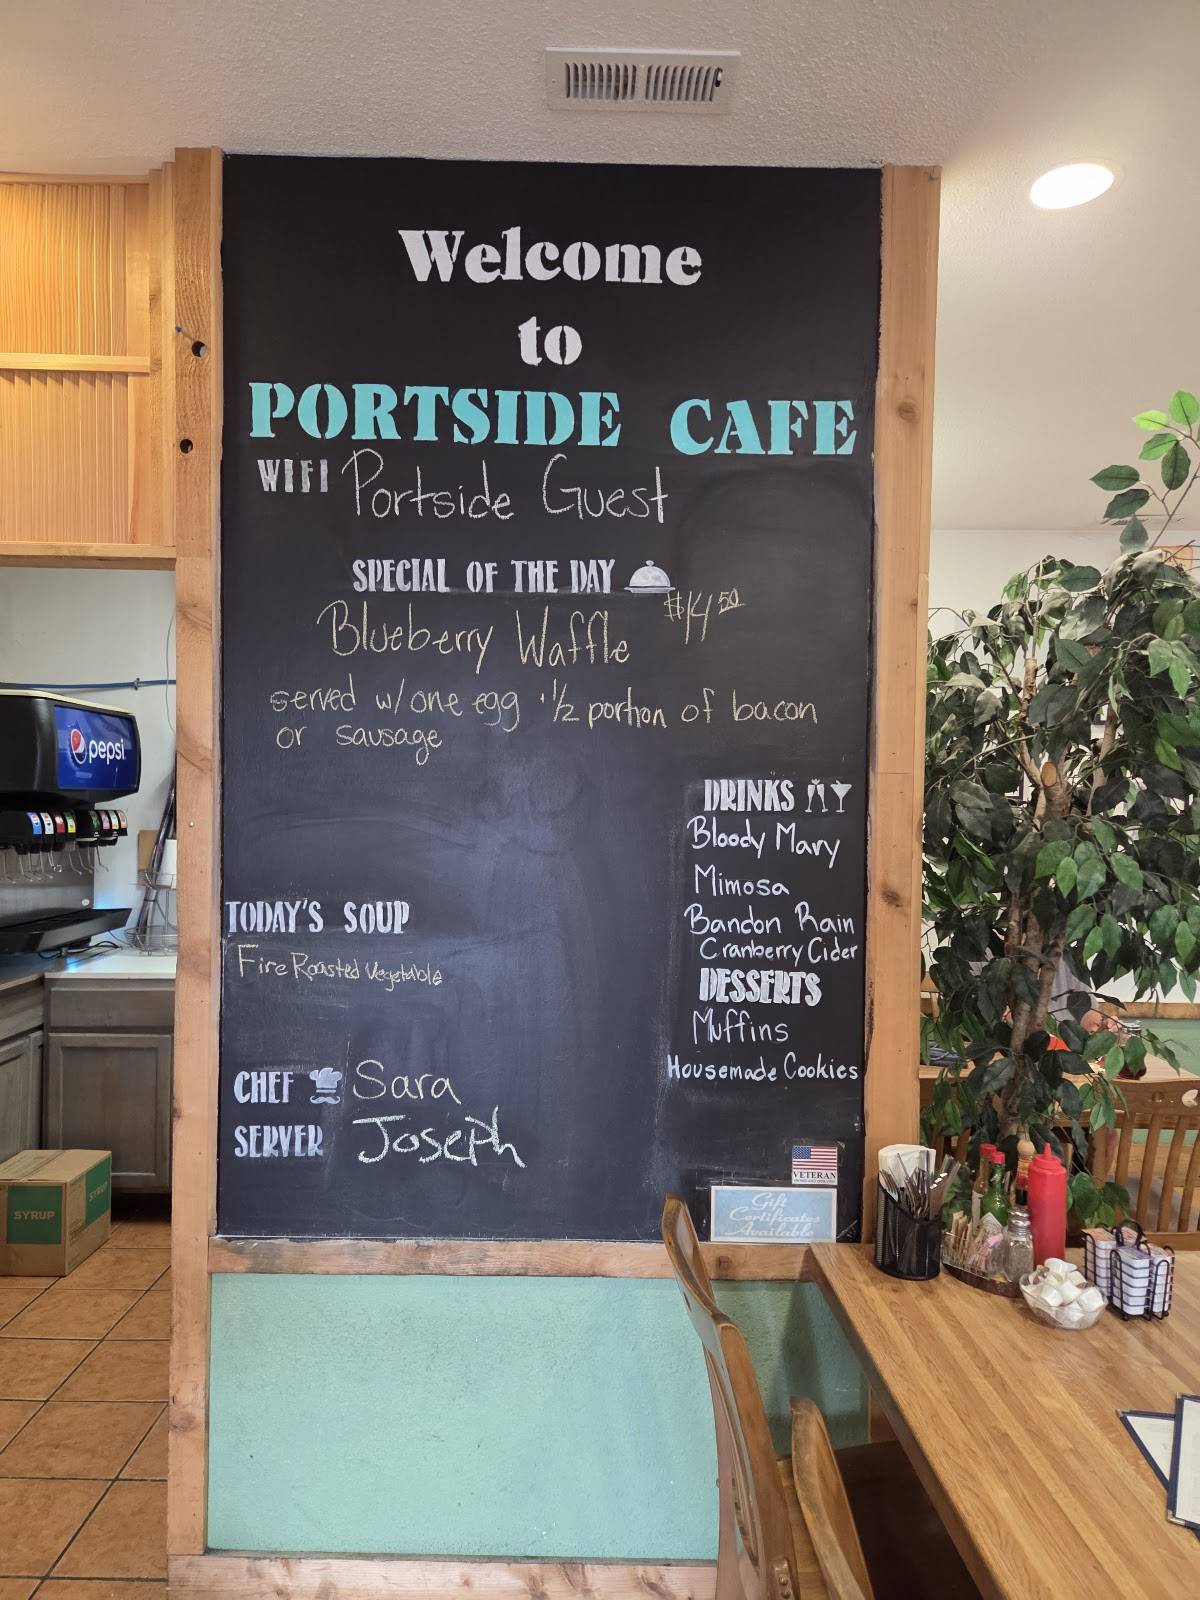 Welcome
to
PORTSIDE CAFE
WIFI Portside Guest
SPECIAL OF THE DAY
Blueberry Waffle $14.50
served w/ one egg · 1/2 portion of bacon
or sausage
DRINKS
Bloody Mary
Mimosa
Bandon Rain
Cranberry Cider
DESSERTS
Muffins
Housemade Cookies
TODAY'S SOUP
Fire Roasted Vegetable
CHEF Sara
SERVER Joseph
VETERAN
Gift
Certificates
Available
pepsi
SYRUP
SYRUP